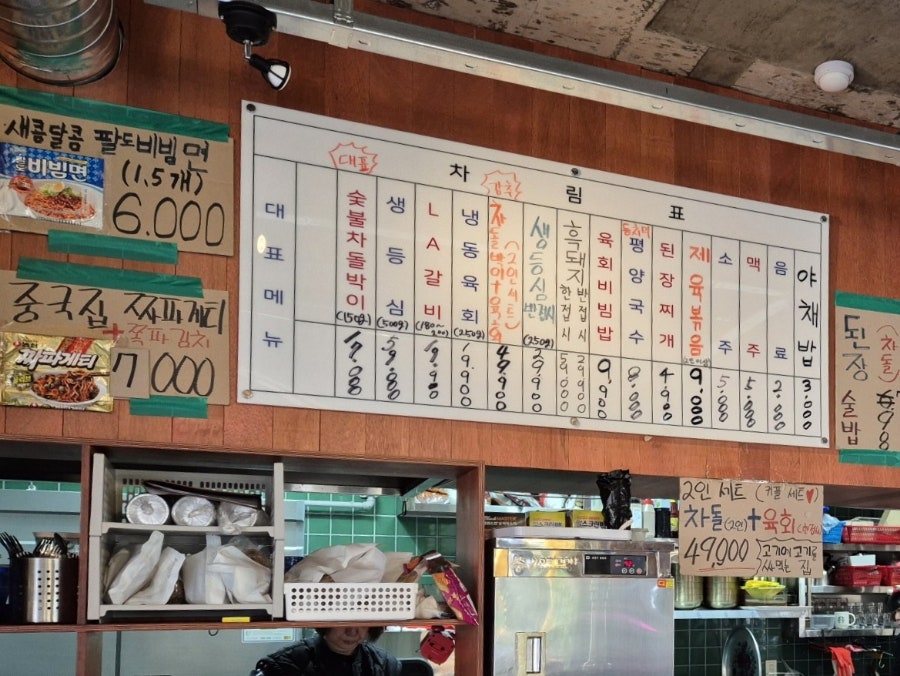 새콤달콤 팔도비빔면
(1.5개)
6.000
비빔면
중국집 짜파게티
+쪽파김치
7000
짜파게티
차림표
대표메뉴
대표
숯불차돌박이
(150g)
생등심
(500g)
LA갈비
냉동육회
(250g)
강추
차돌박이+육회
(2인세트)
생등심
반근
(250g)
흑돼지
한접시
반접시
육회비빔밥
9.900
동치미
평양국수
8.000
된장찌개
4.900
제육볶음
9.000
소주
5.000
맥주
5.000
음료
2.000
야채밥
3.000
된장
차돌
술밥
2인 세트 (커플 세트♥)
차돌(2인)+육회(한접시)
49,000
고기에 고기를
싸먹는 집